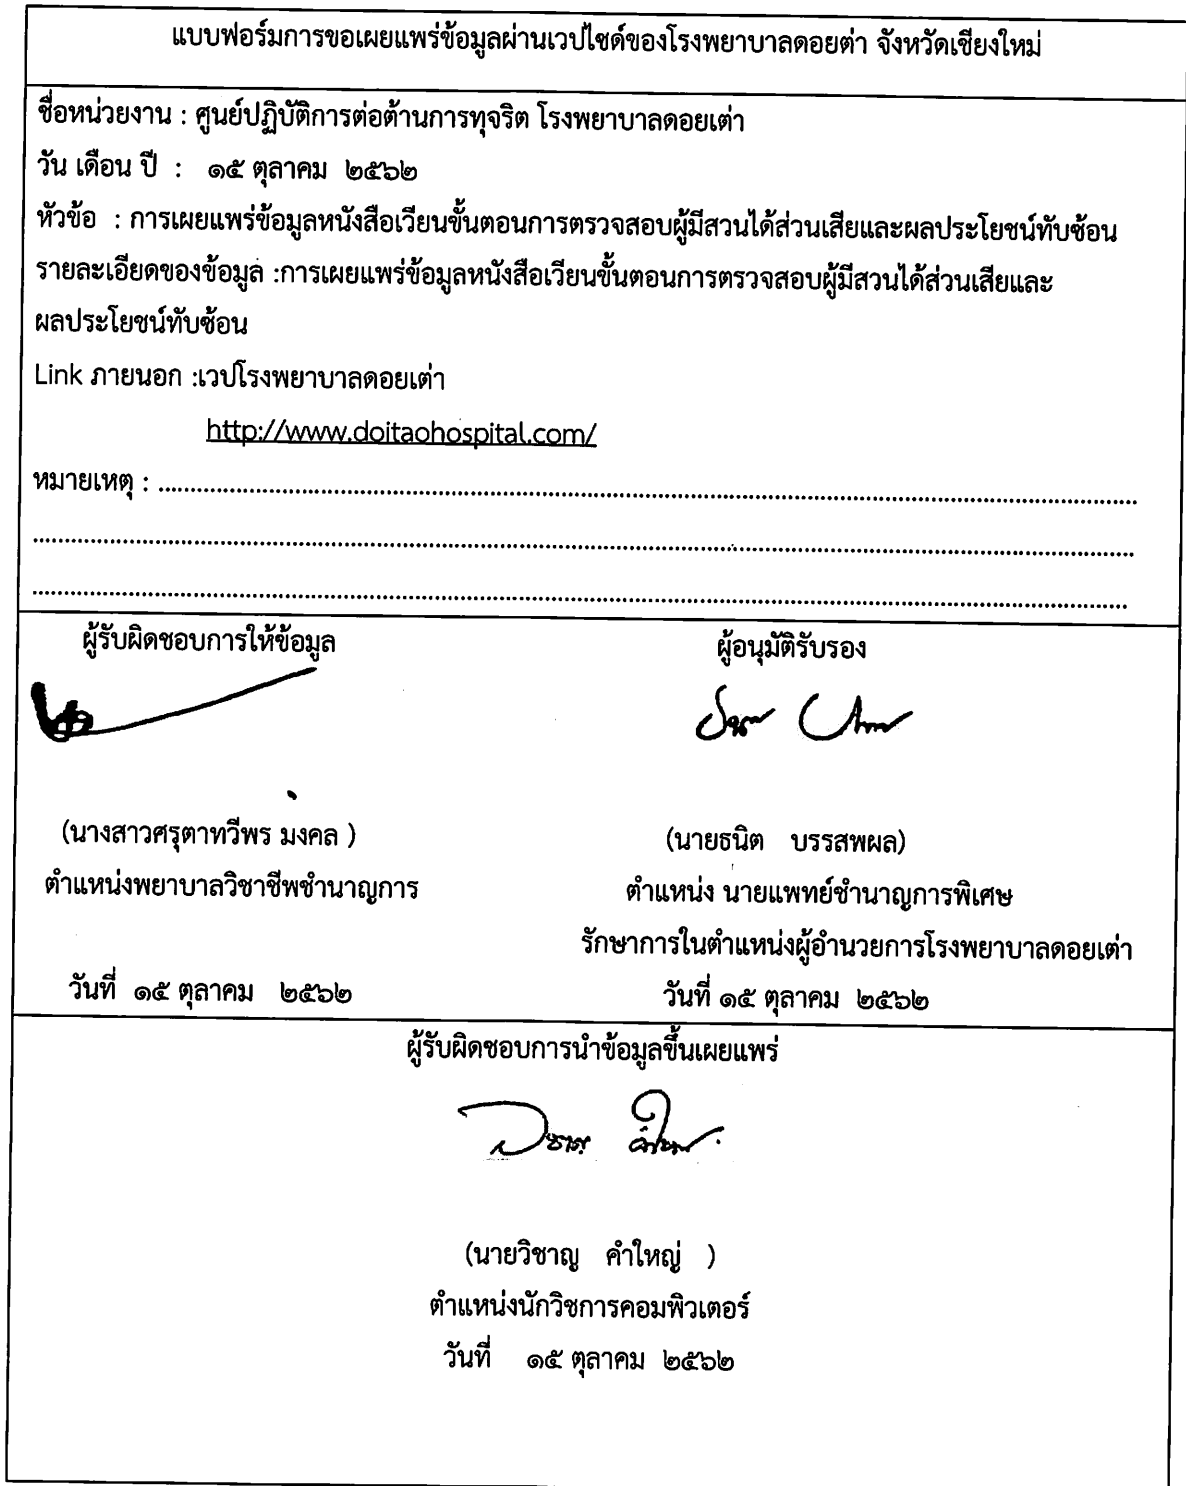 แบบฟอร์มการขอเผยแพร่ข้อมูลผ่านเวปไซด์ของโรงพยาบาลดอยต่า จังหวัดเชียงใหม่
ชื่อหน่วยงาน : ศูนย์ปฏิบัติการต่อต้านการทุจริต โรงพยาบาลดอยเต่า
วัน เดือน ปี : ๑๕ ตุลาคม ๒๕๖๒
หัวข้อ : การเผยแพร่ข้อมูลหนังสือเวียนขั้นตอนการตรวจสอบผู้มีสวนได้ส่วนเสียและผลประโยชน์ทับซ้อน
รายละเอียดของข้อมูล :การเผยแพร่ข้อมูลหนังสือเวียนขั้นตอนการตรวจสอบผู้มีสวนได้ส่วนเสียและ
ผลประโยชน์ทับซ้อน
Link ภายนอก :เวปโรงพยาบาลดอยเต่า
http://www.doitaohospital.com/
หมายเหตุ : ........................................................................
........................................................................
........................................................................
ผู้รับผิดชอบการให้ข้อมูล
(นางสาวศรุตาทวีพร มงคล )
ตำแหน่งพยาบาลวิชาชีพชำนาญการ
วันที่ ๑๕ ตุลาคม ๒๕๖๒
ผู้อนุมัติรับรอง
(นายธนิต บรรสพผล)
ตำแหน่ง นายแพทย์ชำนาญการพิเศษ
รักษาการในตำแหน่งผู้อำนวยการโรงพยาบาลดอยเต่า
วันที่ ๑๕ ตุลาคม ๒๕๖๒
ผู้รับผิดชอบการนำข้อมูลขึ้นเผยแพร่
(นายวิชาญ คำใหญ่ )
ตำแหน่งนักวิชการคอมพิวเตอร์
วันที่ ๑๕ ตุลาคม ๒๕๖๒